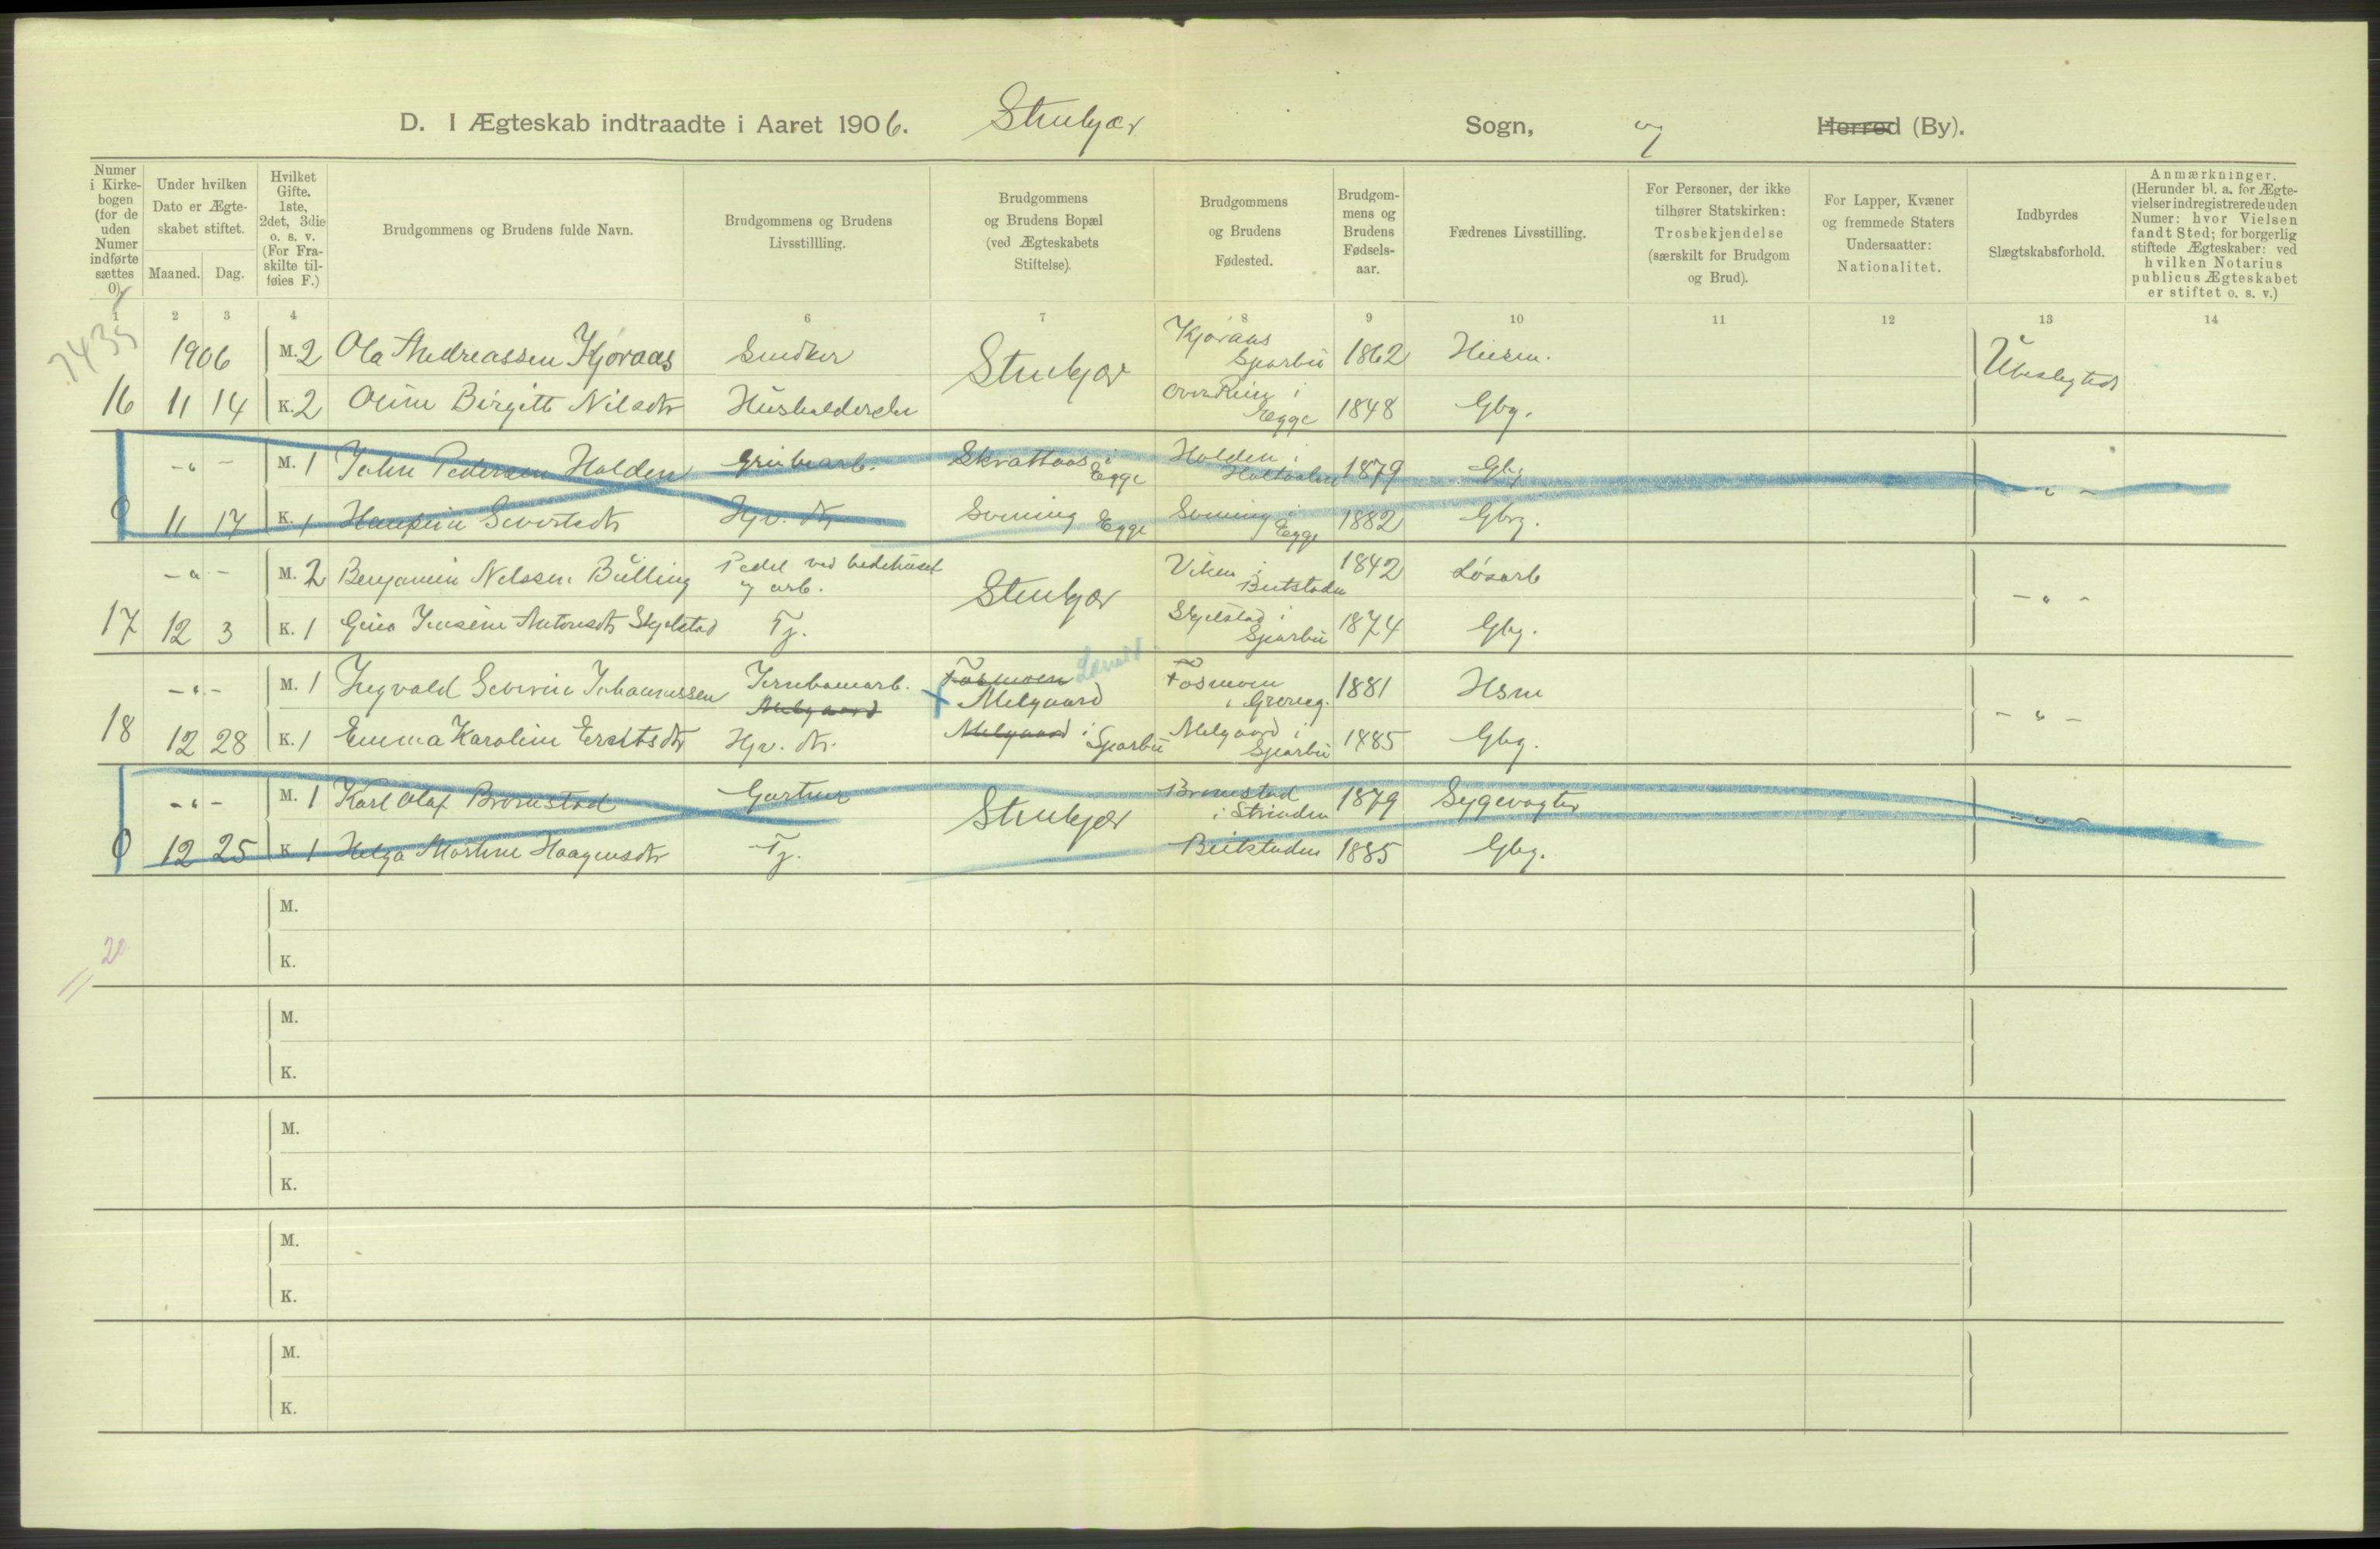 D. I Ægteskab indtraadte i Aaret 1906. Stenkjær Sogn, og Herred (By).
Numer i Kirkebogen (for de uden Numer indførte sættes 0).
Under hvilken Dato er Ægteskabet stiftet.
Maaned. Dag.
Hvilket Gifte. 1ste, 2det, 3die o. s. v. (For Fraskilte tilføies F.)
Brudgommens og Brudens fulde Navn.
Brudgommens og Brudens Livsstillling.
Brudgommens og Brudens Bopæl (ved Ægteskabets Stiftelse).
Brudgommens og Brudens Fødested.
Brudgommens og Brudens Fødselsaar.
Fædrenes Livsstilling.
For Personer, der ikke tilhører Statskirken: Trosbekjendelse (særskilt for Brudgom og Brud).
For Lapper, Kvæner og fremmede Staters Undersaatter: Nationalitet.
Indbyrdes Slægtskabsforhold.
Anmærkninger. (Herunder bl. a. for Ægtevielser indregistrerede uden Numer: hvor Vielsen fandt Sted; for borgerlig stiftede Ægteskaber: ved hvilken Notarius publicus Ægteskabet er stiftet o. s. v.)
1 2 3 4 6 7 8 9 10 11 12 13 14
7435
1906 M. 2 Ola Andreassen Kjøraas Snedker Stenkjær Kjøraas Sparbu 1862 Husm. Ubeslegtet
16 11 14 K. 2 Oline Birgitte Nilsdtr Husholderske Øvre Rein i Egge 1848 Gbr.
-"- M. 1 John Pedersen Holden Grubearb. Skrattaas i Egge Holden i Holtaalen 1879 Gbr -"-
0 11 17 K. 1 Sivertsdtr Hjv. dtr Svening Egge Svening i Egge 1882 Gbr.
-"- M. 2 Benjamin Nelssen Bülling Pedel ved bedehuset og arb. Stenkjær Viken i Beitstaden 1842 Løsarb -"-
17 12 3 K. 1 Gina Jensine Antonsdtr Skjelstad Tj. Skjelstad i Sparbu 1874 Gbr.
-"- M. 1 Ingvald Severin Johannessen Jernbanearb. Melgaard Fosmoen Melgaard Fosmoen i Grong. 1881 Hsm -"-
18 12 28 K. 1 Emma Karoline Hjv. dtr. Melgaard i Sparbu Melgaard i Sparbu 1885 Gbr.
-"- M. 1 Karl Olaf Bromstad Gartner Stenkjær Bromstad i Strinden 1879 Sygevogter -"-
0 12 25 K. 1 Helga Martine Haagensdtr Tj. Beitstaden 1885 Gbr.
M.
20 K.
M.
K.
M.
K.
M.
K.
M.
K.